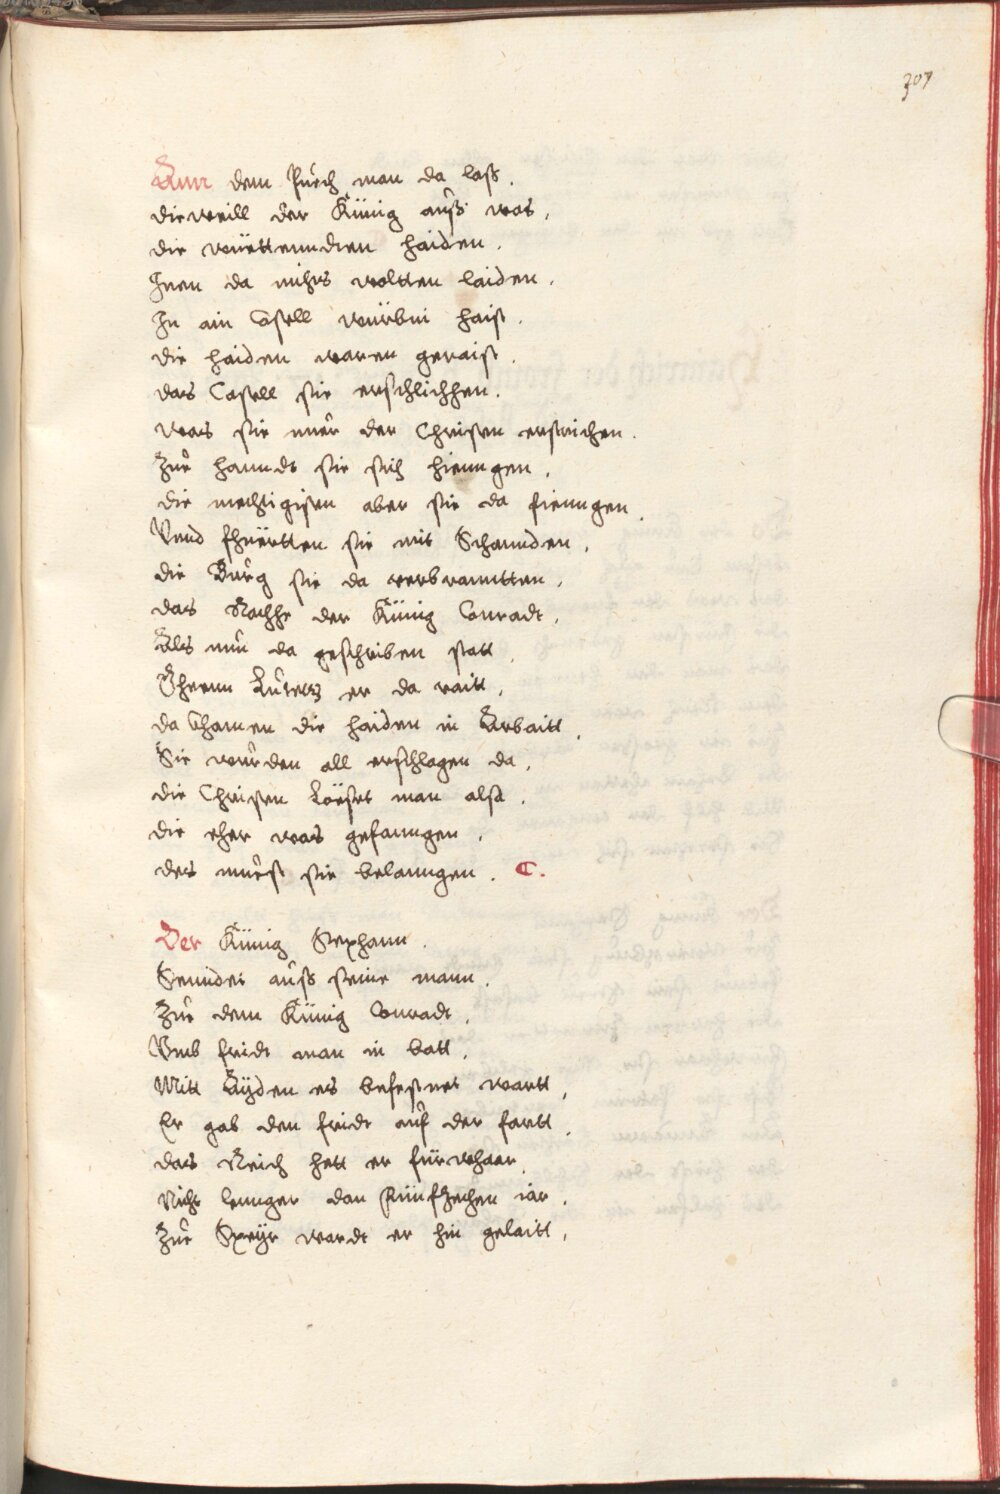 307
Ann dem Puech man da lass.
dieweill der Künig auss was,
die wüettenndten haiden.
Inen da nichts woltten laiden.
In ain Castell würbin haist.
die haiden waren geraist.
das Castell sie erschlichhen.
was sie nuer der Christen erstrichen.
Zue hanndt sie sich hienngen.
die mechtigisten aber sie da fienngen.
Vnnd fhuertten sie mit Schannden,
die Burg sie da verbranntten,
das Rache der Künig Conradt,
Als nun da geschriben statt,
Ghenn Lutettz er da raitt,
da Chamen die haiden in Arbaitt,
Sie wurden all erschlagen da,
die Christen Loeset man alsa.
die eher was gefanngen,
des muest sie belanngen. C.
Der Künig Stephann.
Senndet auss seine mann,
Zue dem Künig Conradt,
Vmb fridt man in batt,
Mitt Aÿden es befestnet wartt,
Er gab den fridt auf der fartt,
das Reich hett er fürwhaar,
Nicht lennger dan Fünfzechen iar.
Zue Speÿr wardt er hin gelaitt,